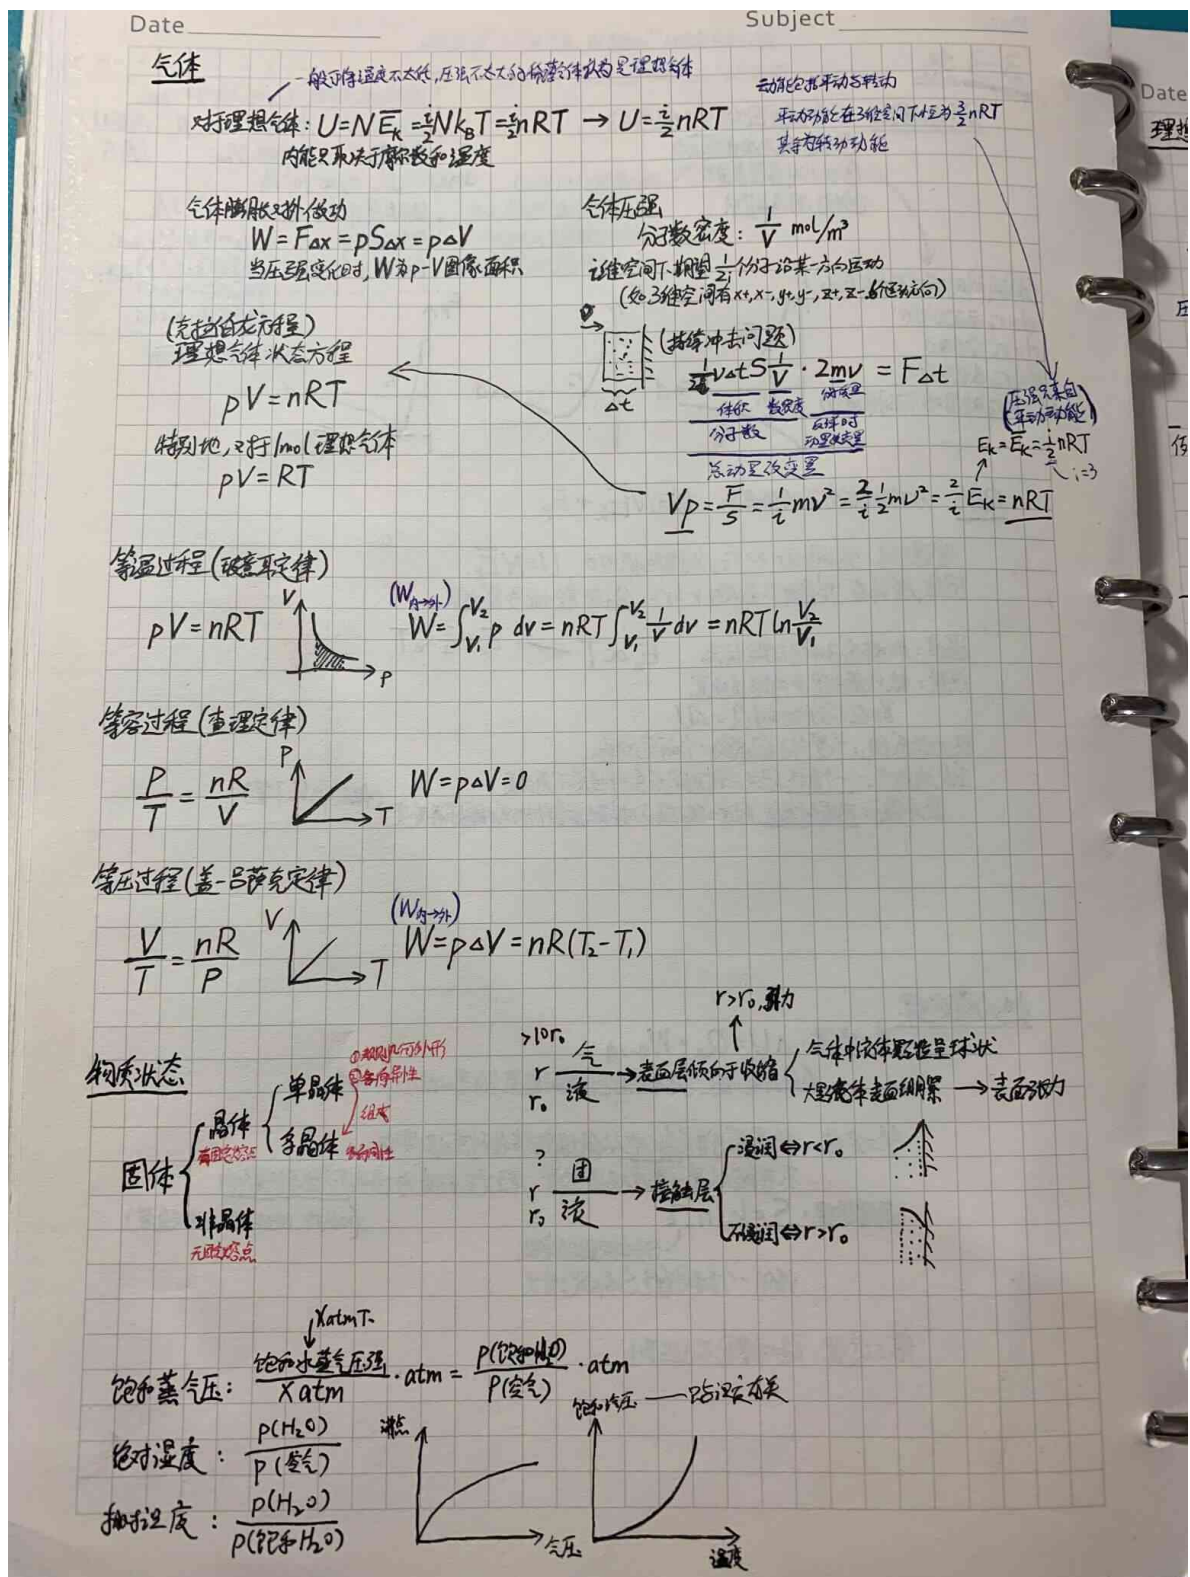 Date
Subject
气体
一般可将温度不太低,压强不太大的稀薄气体视为是理想气体
对于理想气体: U=NĒₖ=i/2 Nk_BT=i/2 nRT → U=i/2 nRT
内能只取决于摩尔数和温度
动能包括平动与转动
平动动能在3维空间下恒为3/2 nRT
其余为转动动能
气体膨胀对外做功
W=FΔx=pSΔx=pΔV
当压强变化时,W为p-V图像面积
气体压强
分子数密度: 1/V mol/m³
i维空间下期望1/2i个分子沿某一方向运动
(如3维空间有x+,x-,y+,y-,z+,z-6个运动方向)
(持续冲击问题)
1/2i vΔtS 1/V · 2mv = FΔt
体积 数密度 分子质量
分子数 反弹时
动量改变量
总动量改变量
Δt
(压强只来自
平动动能)
Eₖ=Ēₖ=i/2 nRT
i=3
Vp=F/S=1/i mv²=2/i 1/2 mv²=2/i Ēₖ=nRT
(克拉伯龙方程)
理想气体状态方程
pV=nRT
特别地,对于1mol理想气体
pV=RT
等温过程(玻意耳定律)
pV=nRT
V
P
(W内→外)
W=∫_{V₁}^{V₂} p dv=nRT∫_{V₁}^{V₂} 1/V dv=nRT ln V₂/V₁
等容过程(查理定律)
P/T=nR/V
P
T
W=pΔV=0
等压过程(盖-吕萨克定律)
V/T=nR/P
V
T
(W内→外)
W=pΔV=nR(T₂-T₁)
物质状态
固体
晶体
有固定熔点
单晶体
①规则几何外形
②各向异性
组成
多晶体
各向同性
非晶体
无固定熔点
r>r₀,引力
>10r₀
r
r₀
气
液
→表面层倾向于收缩
气体中液体颗粒呈球状
→表面张力
?
r
r₀
固
液
→接触层
浸润⇔r<r₀
不浸润⇔r>r₀
Xatm T.
饱和蒸气压: 饱和水蒸气压强/X atm ·atm=P(饱和H₂O)/P(空气) ·atm
绝对湿度: P(H₂O)/P(空气)
相对湿度: P(H₂O)/P(饱和H₂O)
沸点
气压
饱和汽压 — 只与温度有关
温度
Date